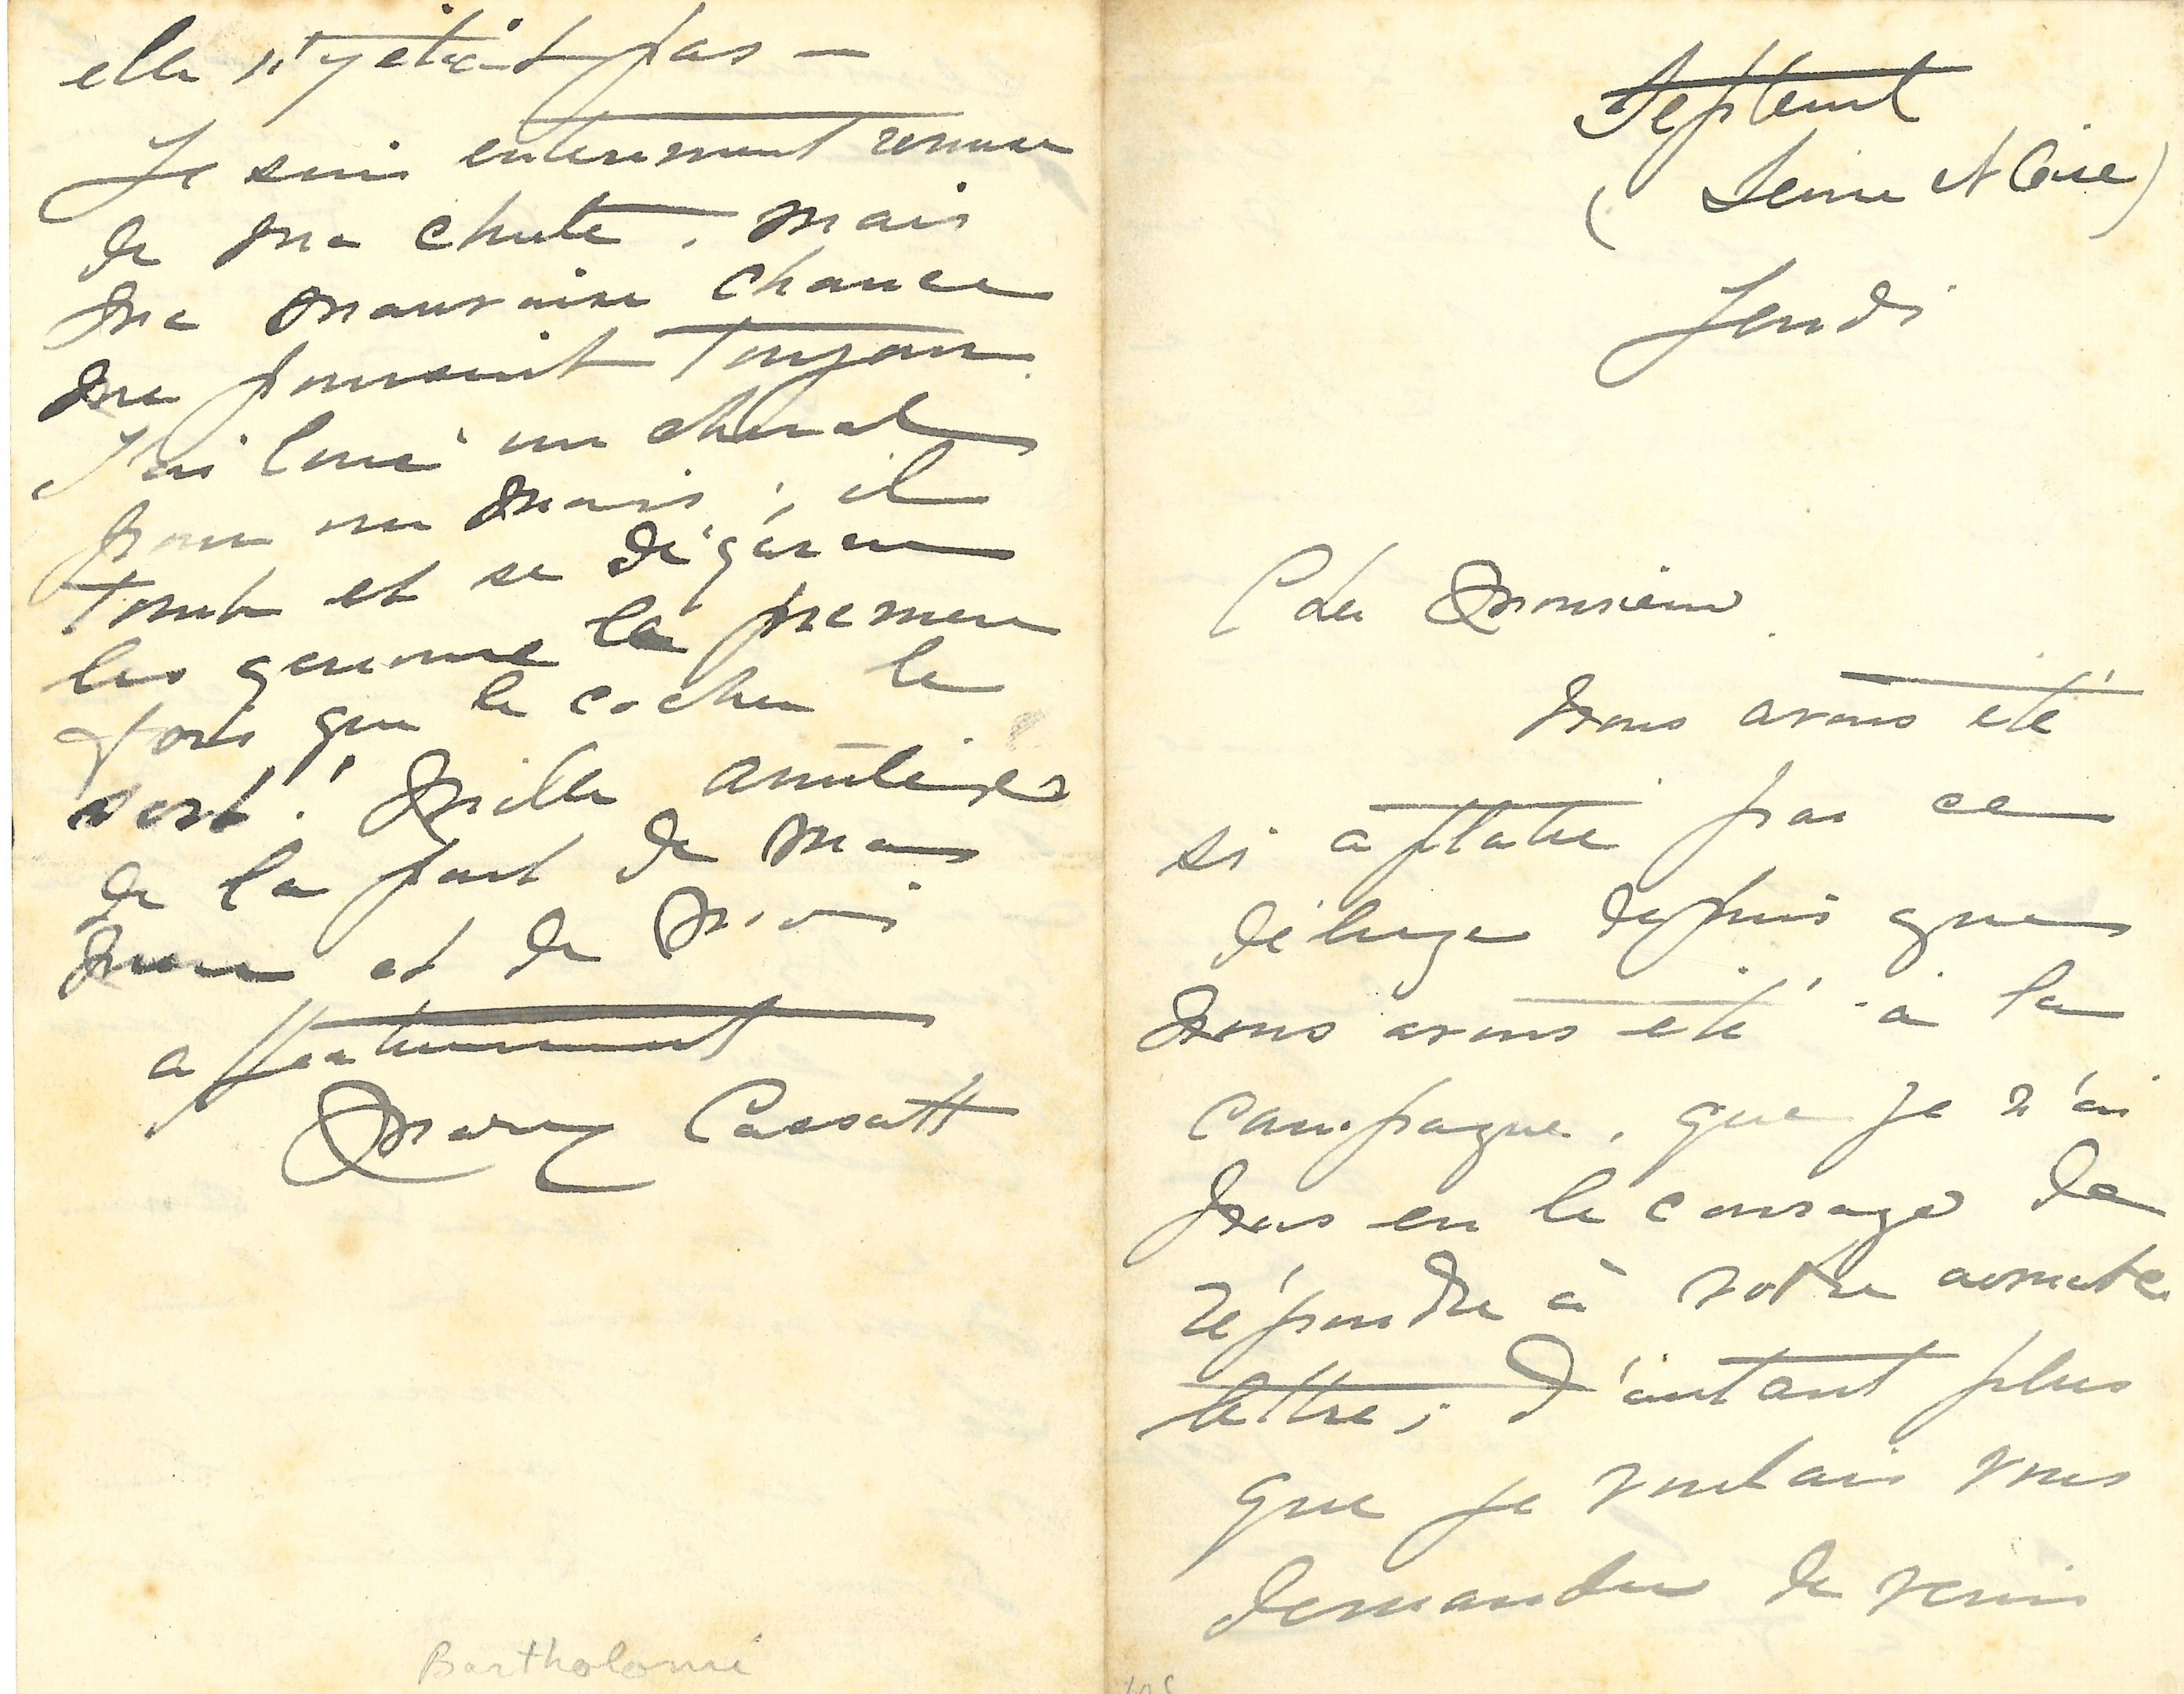 Septeuil
(Seine et Oise)
Jeudi
Cher Monsieur,
Nous avons été
si aplatie par ce
déluge depuis que
nous avons été à la
campagne, que je n'ai
pas eu le courage de
répondre à votre aimable
lettre; d'autant plus
que je voulais vous
demander de venir
elle n'y était pas —
Je suis entierement remise
de ma chute, mais
ma mauvaise chance
me poursuit toujours.
J'ai loué un cheval
pour un mois; il
tombe et se dégarni
les genoux la premiere
fois que le cocher le
sort! Mille amitiés
de la part de ma
mere et de moi
affectueusement
Mary Cassatt
Bartholomé